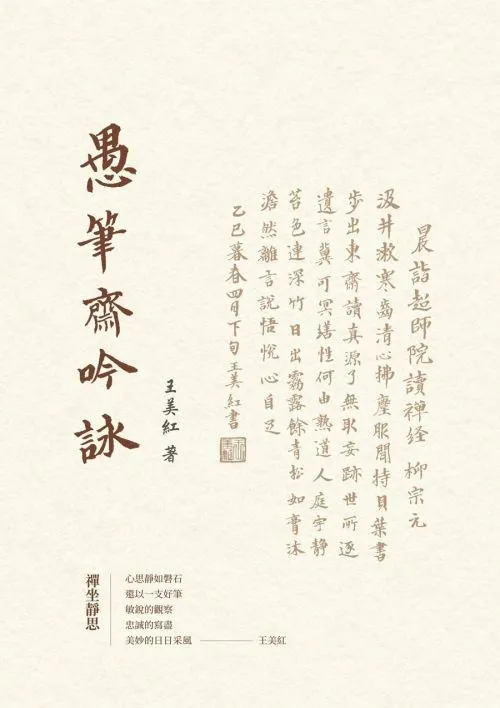 愚筆齋吟詠
王美紅 著
晨詣超師院讀禪経 柳宗元
汲井漱寒齒清心拂塵服閒持貝葉書
步出東齋讀真源了無取妄跡世所逐
遺言冀可冥繕性何由熟道人庭宇靜
苔色連深竹日出霧露餘青松如膏沐
澹然離言說悟悅心自足
乙巳暮春四月下旬王美紅書
禪坐靜思
心思靜如磐石
還以一支好筆
敏銳的觀察
忠誠的寫盡
美妙的日日采風 ——— 王美紅